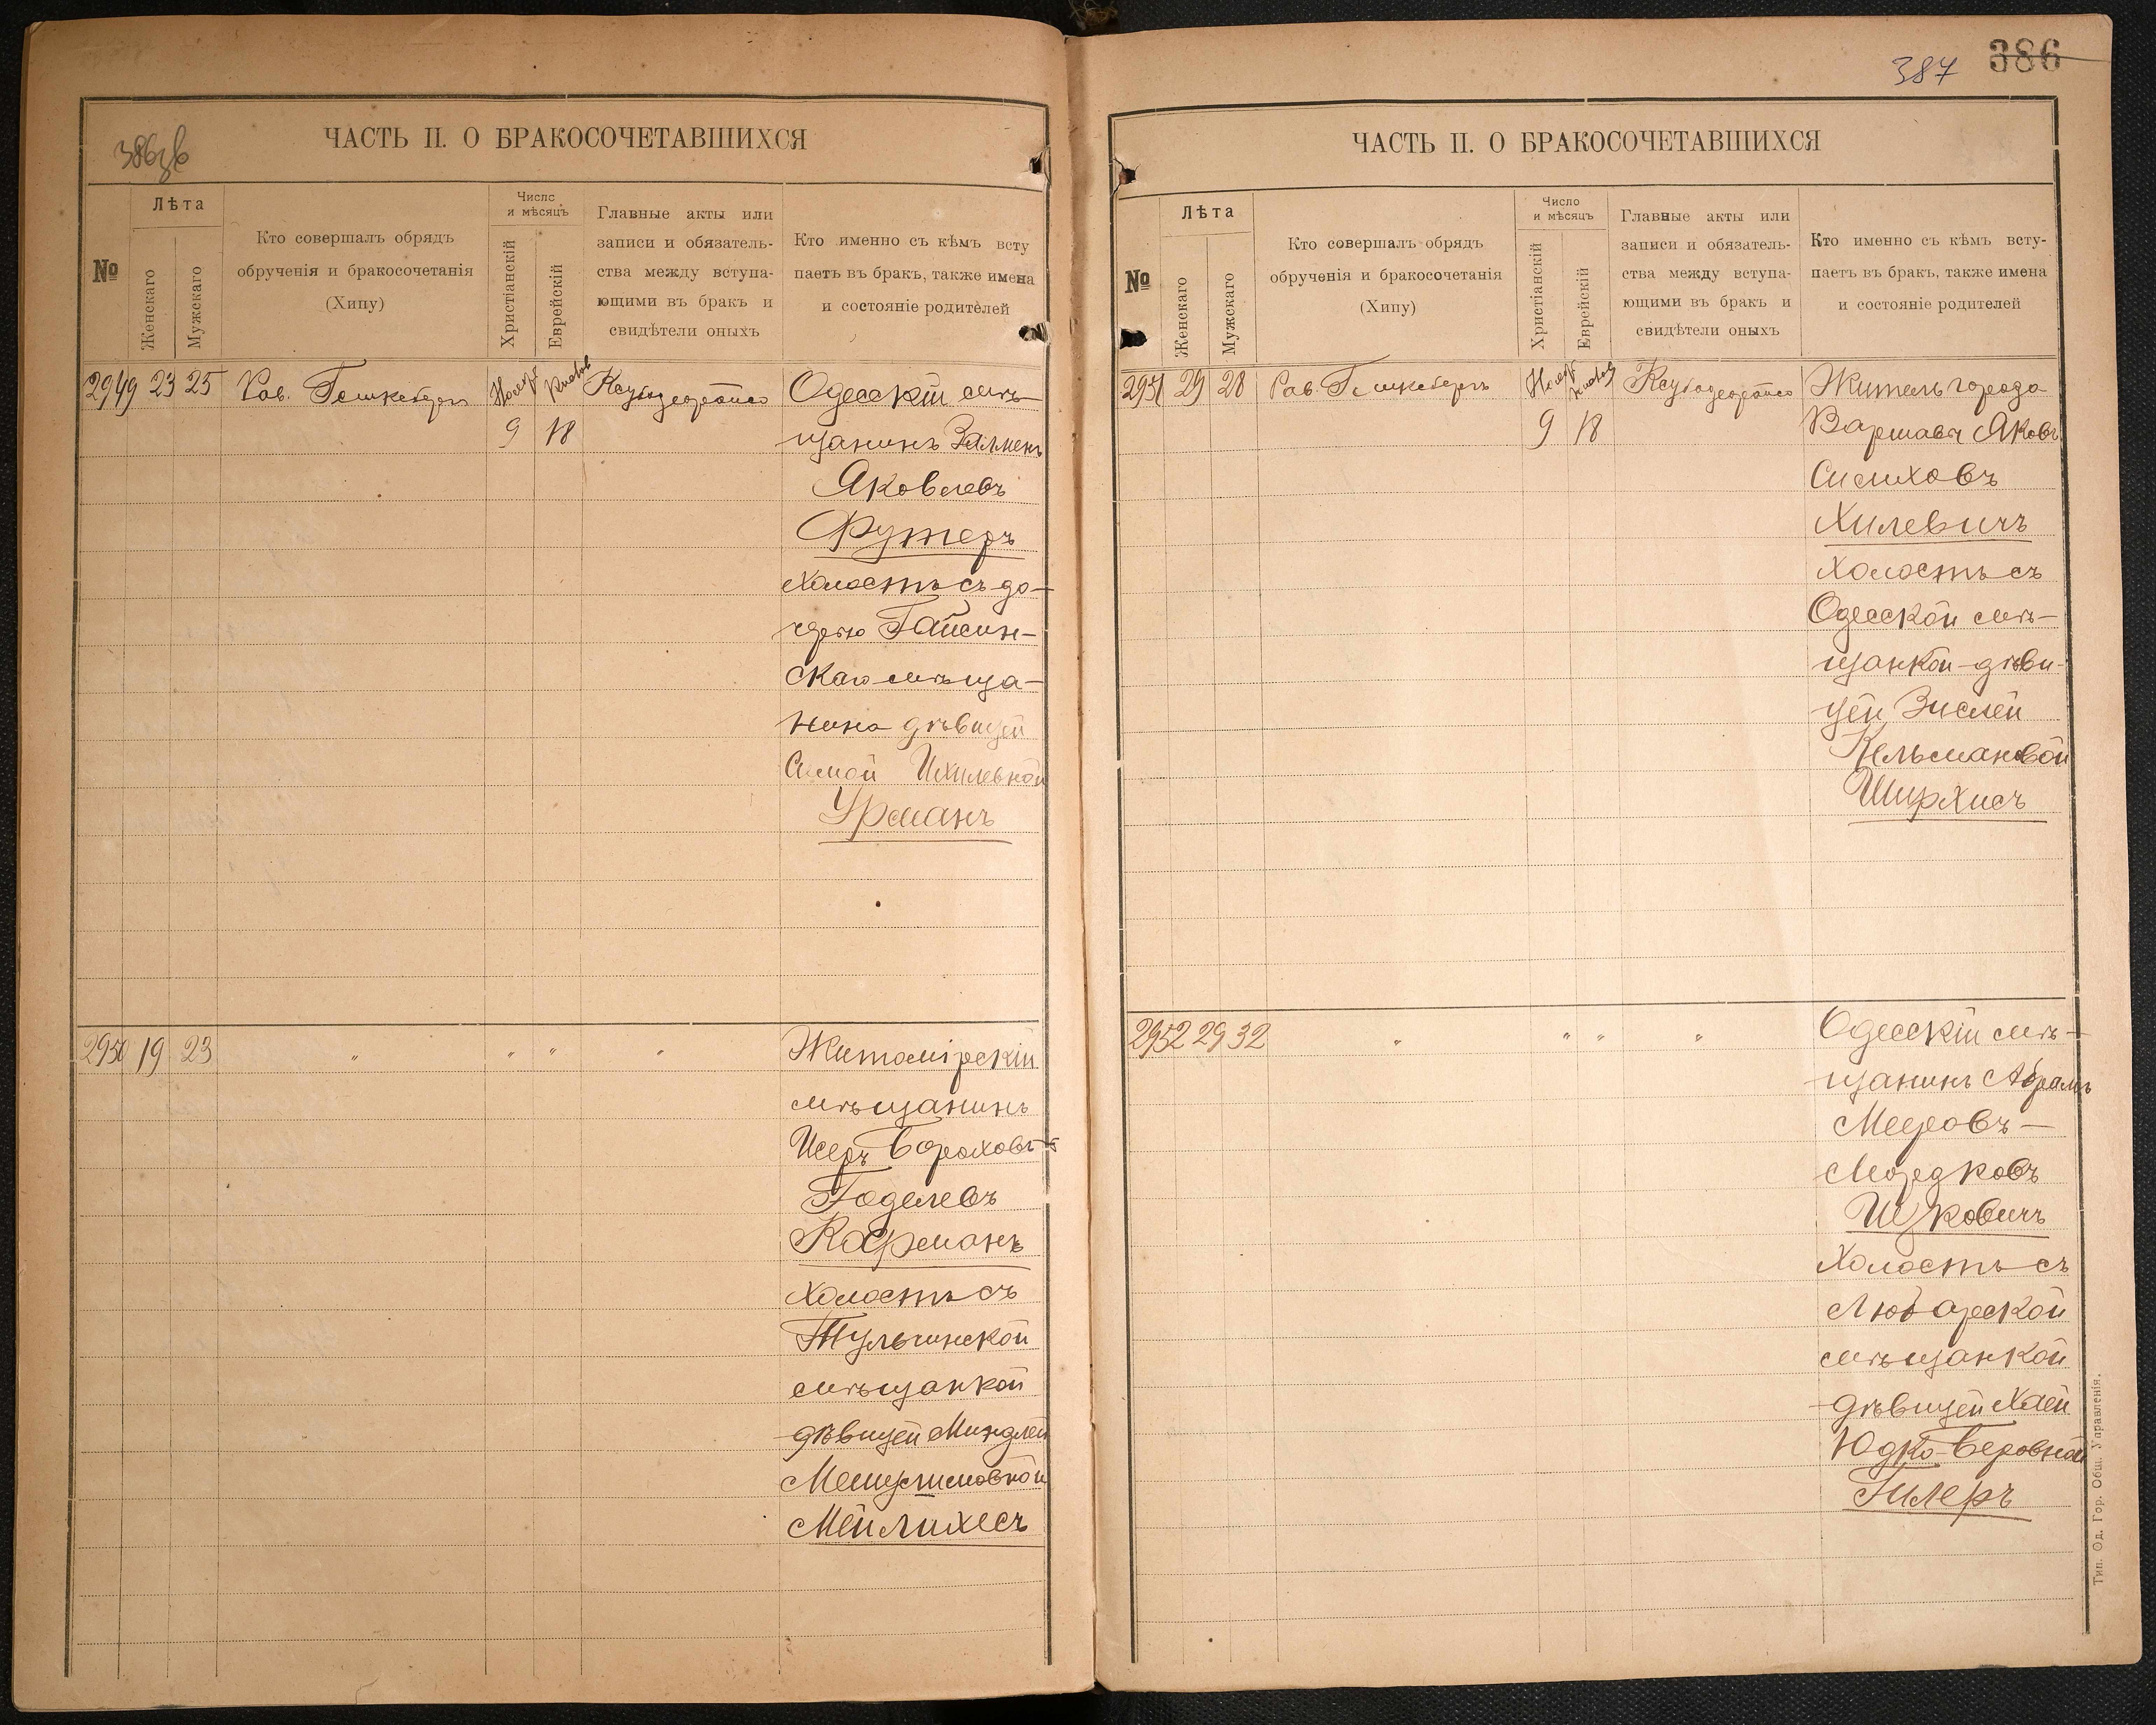 386зв
ЧАСТЬ II. О БРАКОСОЧЕТАВШИХСЯ
№
Лѣта
Женскаго
Мужскаго
Кто совершалъ обрядъ
обрученія и бракосочетанія
(Хипу)
Число
и мѣсяцъ
Христіанскій
Еврейскій
Главные акты или
записи и обязатель-
ства между вступа-
ющими въ бракъ и
свидѣтели оныхъ
Кто именно съ кѣмъ всту
паетъ въ бракъ, также имена
и состояніе родителей
2949 23 25 Рав. Ноябр
9 18
Одесскій мѣ-
щанинъ Залменъ
Яковлевъ
Футеръ
холостъ съ до-
черью Гайсин-
скаго мѣща-
нина дѣвицей
Симой Ихилевной
Урманъ
2950 19 23 " " " "
Житомірскій
мѣщанинъ
Исеръ Бороховъ-
Годелевъ
Карманъ
холостъ съ
Тульчинской
мѣщанкой
дѣвицей Миндлей
Мейлихесъ
387 386
ЧАСТЬ II. О БРАКОСОЧЕТАВШИХСЯ
№
Лѣта
Женскаго
Мужскаго
Кто совершалъ обрядъ
обрученія и бракосочетанія
(Хипу)
Число
и мѣсяцъ
Христіанскій
Еврейскій
Главные акты или
записи и обязатель-
ства между вступа-
ющими въ бракъ и
свидѣтели оныхъ
Кто именно съ кѣмъ всту-
паетъ въ бракъ, также имена
и состояніе родителей
2951 29 28 Рав. Ноябр
9 18
Житель города
Варшавы Яковъ
Симховъ
Хилевичъ
холостъ съ
Одесской мѣ-
щанкой-дѣви-
цей Зислей
Кельмановой
Ширхисъ
2952 29 32 " " " "
Одесскій мѣ-
щанинъ Абрамъ
Мееровъ-
Мордковъ
Ицковичъ
холостъ съ
Любарской
мѣщанкой
дѣвицей Хаей
Юдко-Беровной
Гилеръ
Тип. Од. Гор. Общ. Управленія.